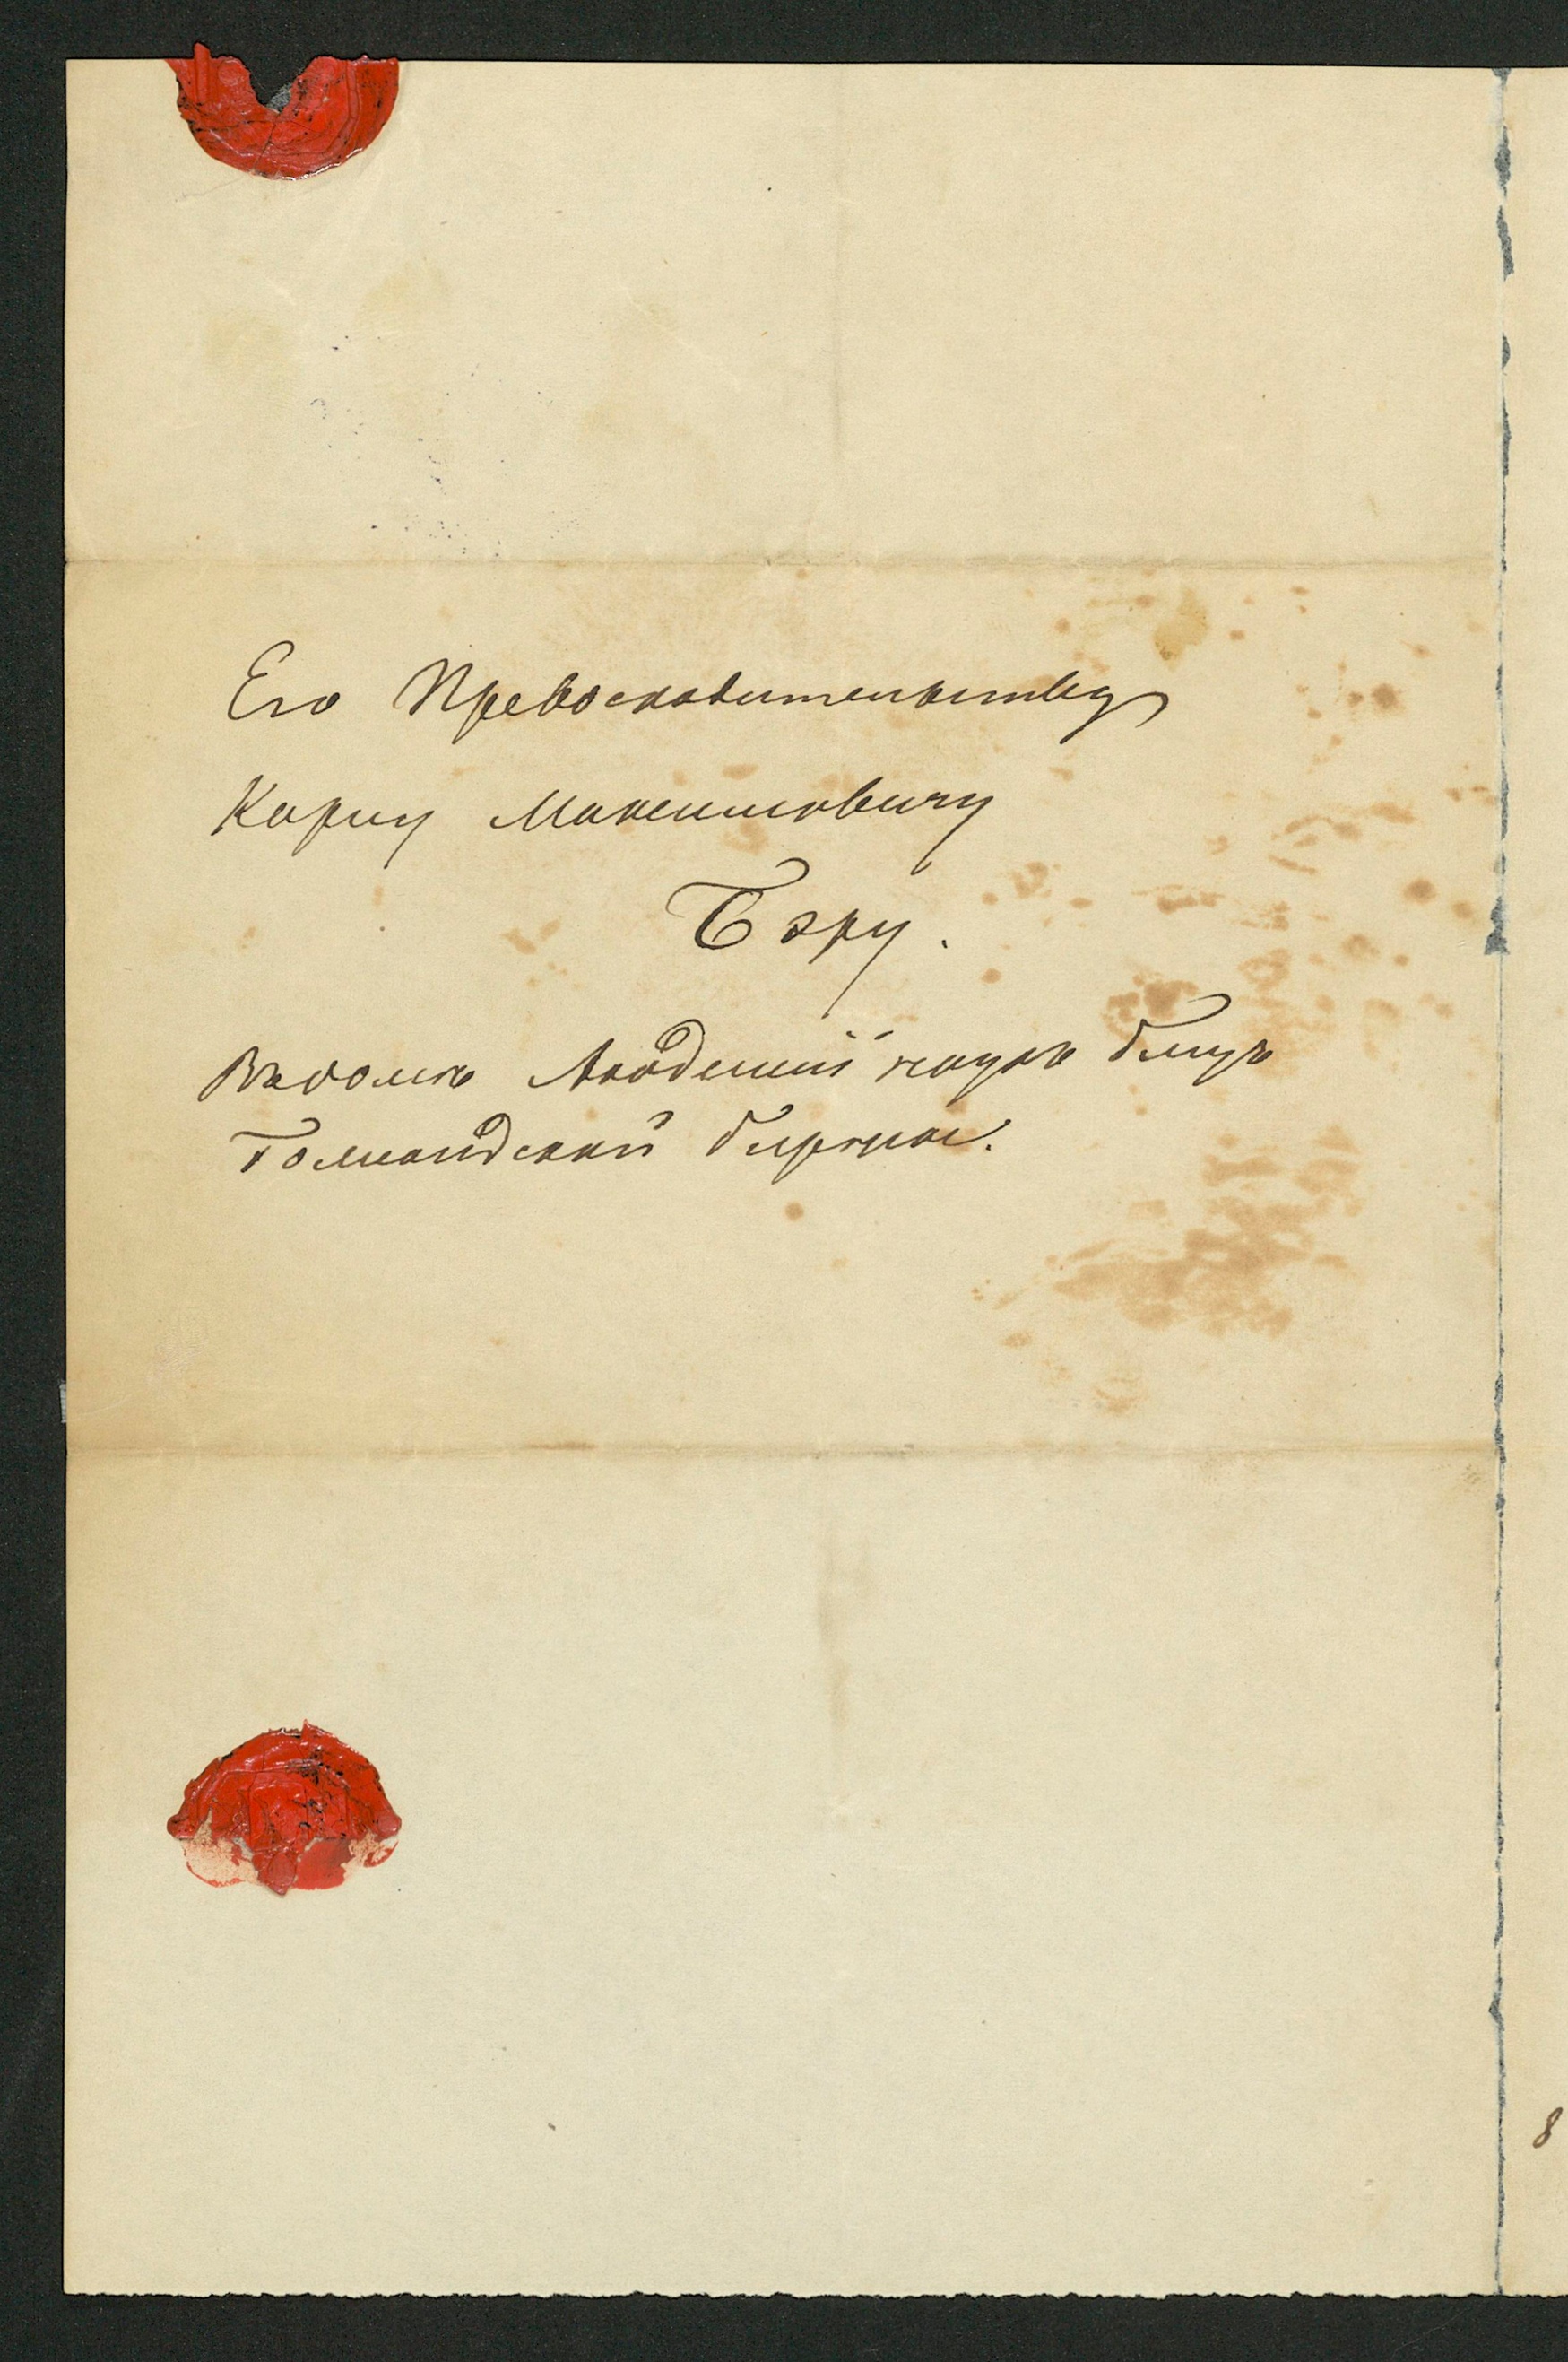 Его Превосходительству
Карлу Максимовичу
Бэру.
Въ доме Академіи наукъ близъ
Голландской биржи.
8